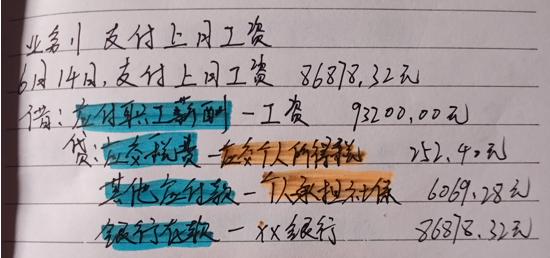 业务11 支付上月工资
6月14日,支付上月工资 86878.32元
借:应付职工薪酬—工资 93200.00元
贷:应交税费—应交个人所得税 252.40元
其他应付款—个人承担社保 6069.28元
银行存款—XX银行 86878.32元